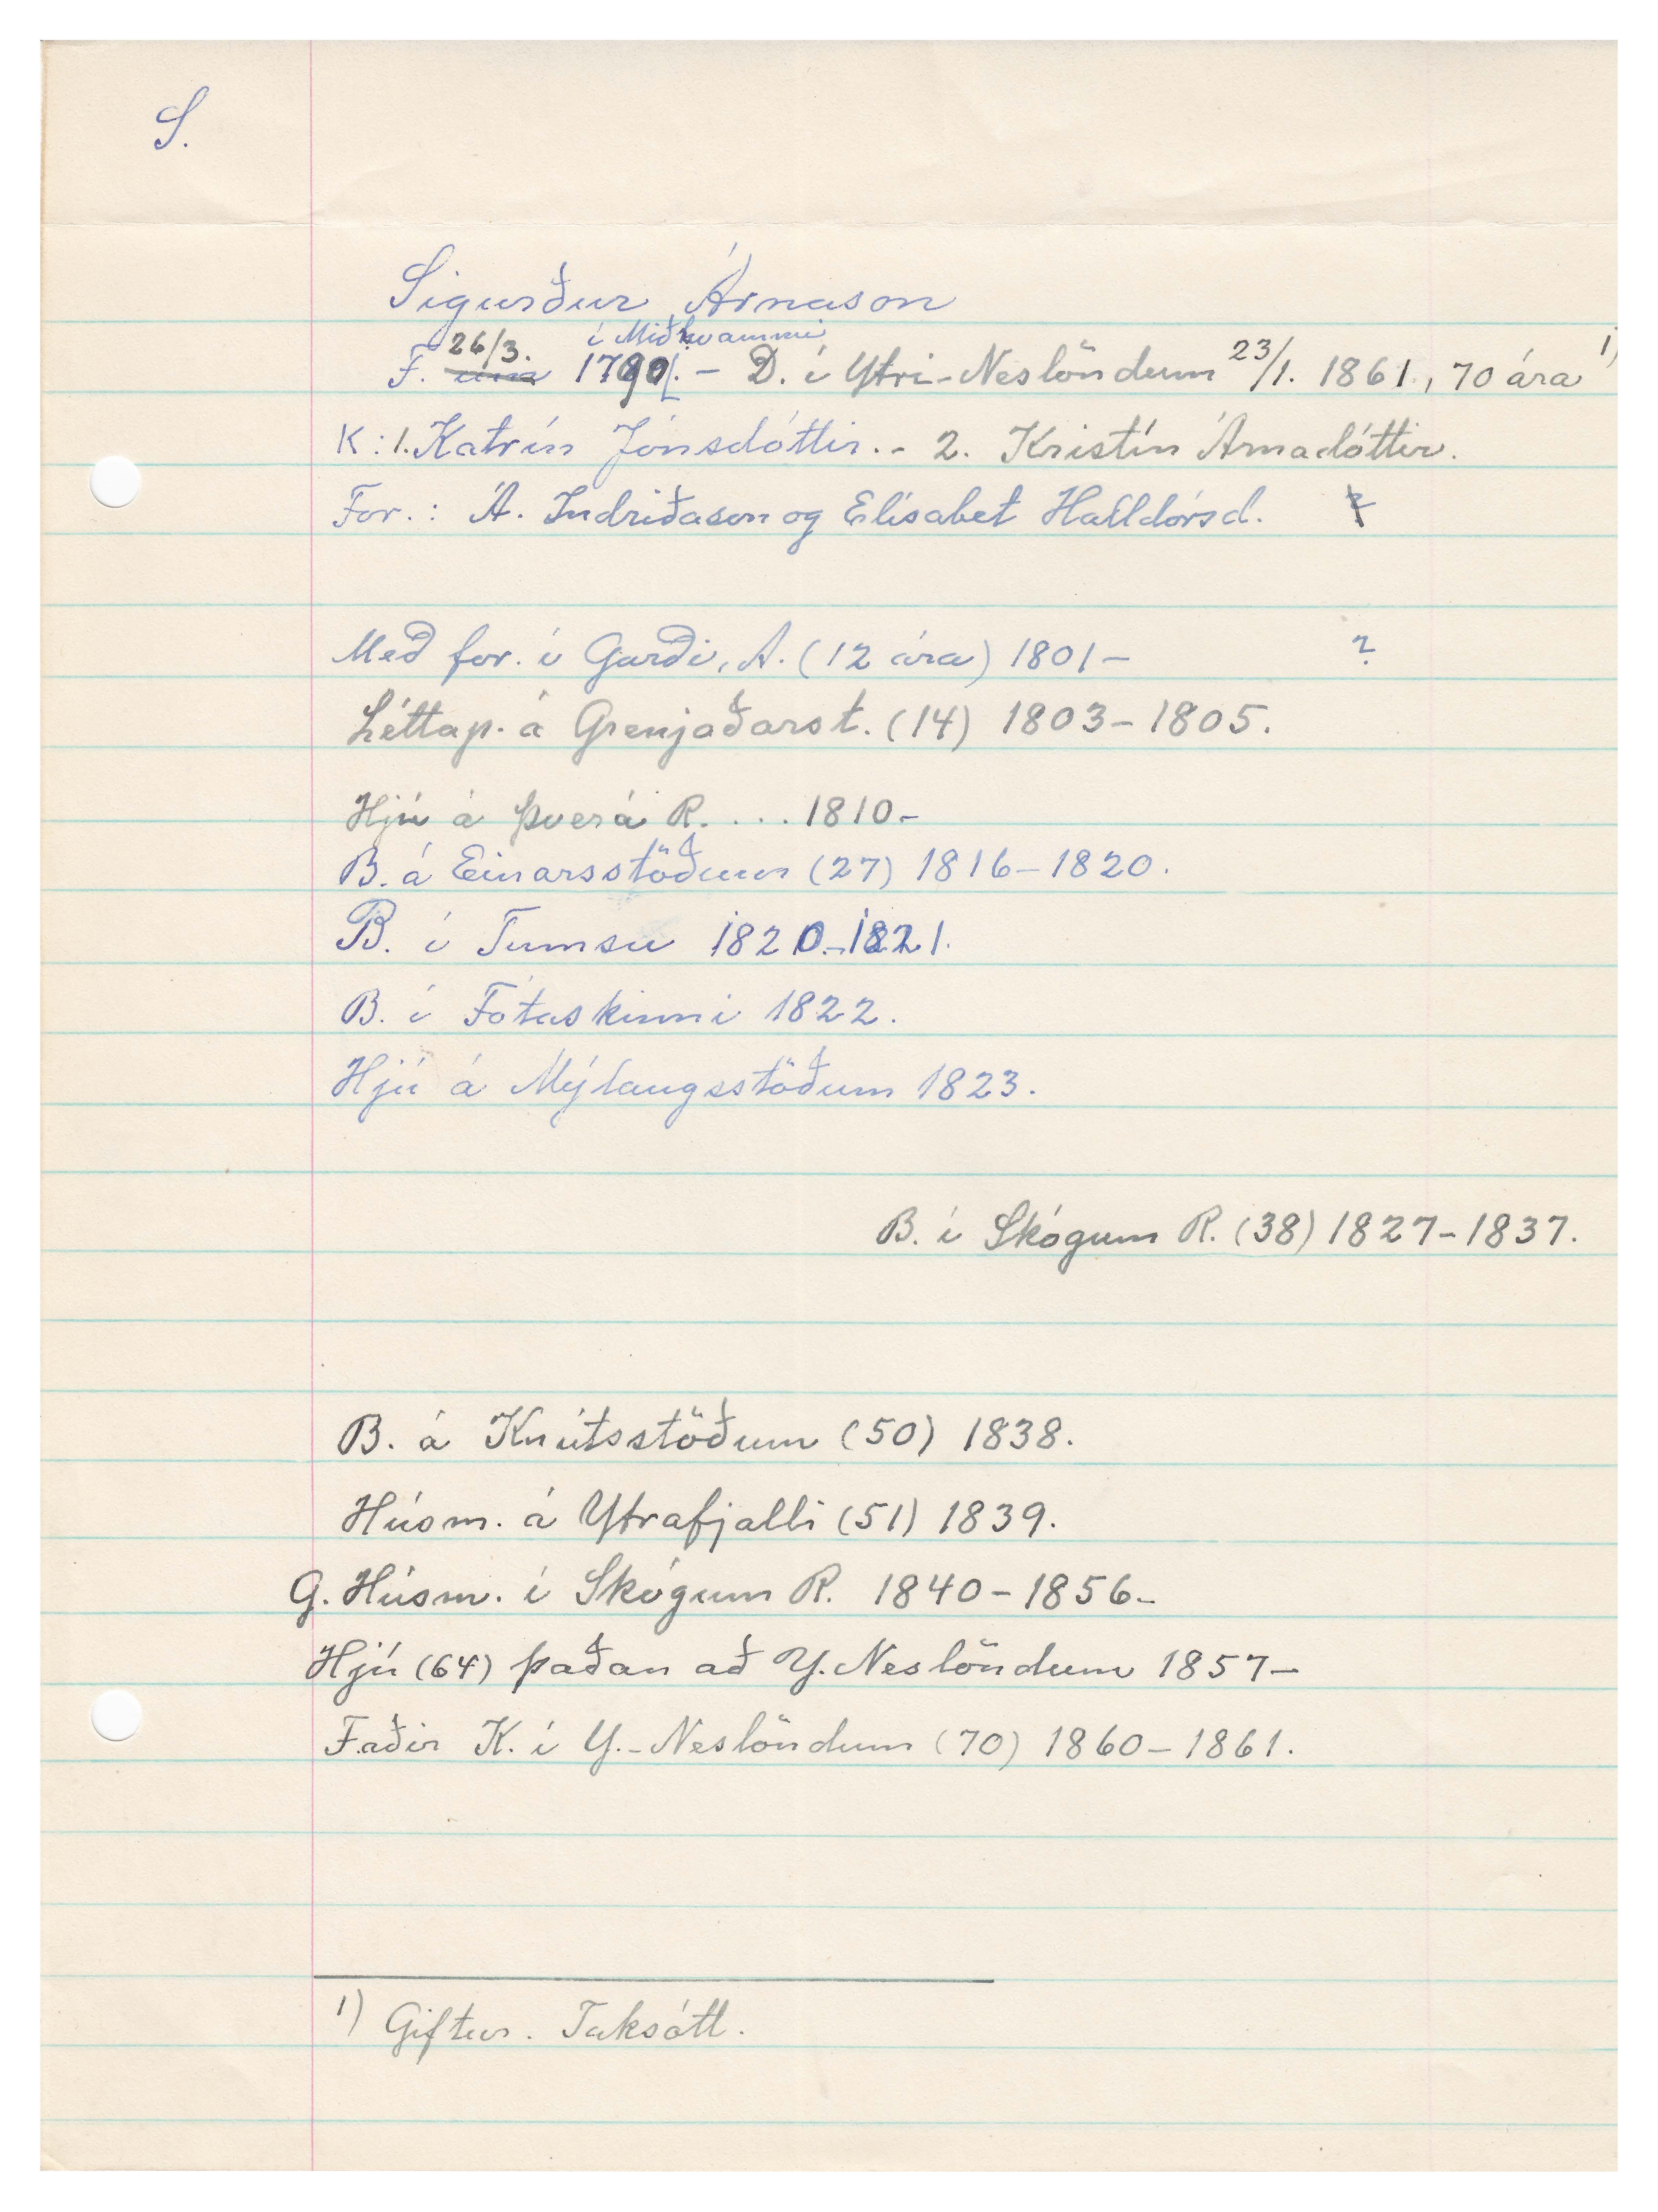 S.
Sigurður Árnason
26/3. í Miðhvammi
F. 1790. - D. í Ytri-Neslöndum 23/1. 1861, 70 ára 1)
K: 1. Katrín Jónsdóttir. - 2. Kristín Árnadóttir.
For.: Á. Indriðason og Elísabet Halldórsd.
Með for. í Garði, A. (12 ára) 1801- ?
Léttap. á Grenjaðarst. (14) 1803-1805.
Hjú á Þverá R. ... 1810-
B. á Einarsstöðum (27) 1816-1820.
B. í Tumsu 1820-1821.
B. í Fótaskinni 1822.
Hjú á Mýlaugsstöðum 1823.
B. í Skógum R. (38) 1827-1837.
B. á Knútsstöðum (50) 1838.
Húsm. á Ytrafjalli (51) 1839.
G. Húsm. í Skógum R. 1840-1856-
Hjú (64) þaðan að Y. Neslöndum 1857-
Faðir K. í Y.-Neslöndum (70) 1860-1861.
1) Giftur. Taksótt.